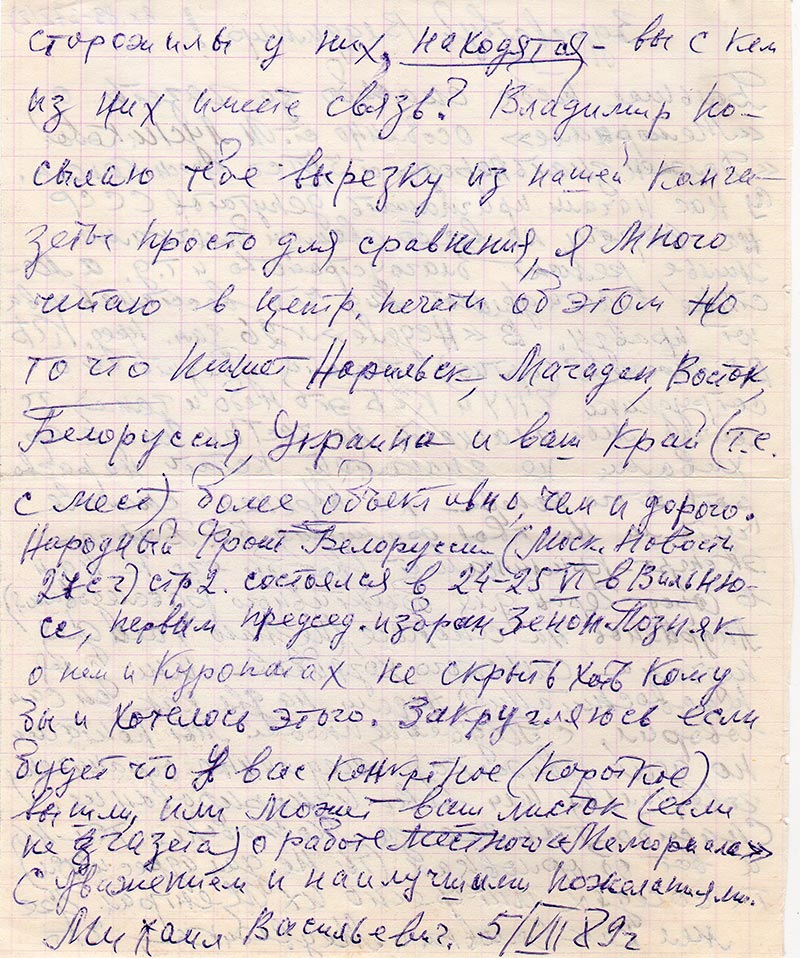 сторожилы у них находятся – вы с кем
из них имеете связь? Владимир по-
сылаю тебе вырезку из нашей
просто для сравнения, я много
читаю в центр. печати об этом но
то что пишет Норильск, Магадан, Восток,
Белоруссия, Украина и ваш край (т.е.
с мест) более объективно, чем и дорого.
Народный Фронт Белоруссии (Моск. Новости
стр 2. состоялся в 24-25 VI в Вильню-
се, первым председ. избран Зенон Позняк -
о нем и Куропатах не скрыть хоть кому
бы и хотелось этого. Закругляюсь если
будет что у вас конкртное (короткое)
вышли, или может ваш листок (если
не газета) о работе местного «Мемориала»
С уважением и наилучшими пожеланиями.
Михаил Васильевич. 5/VII 89г